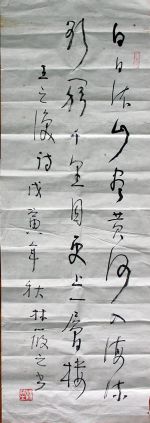 白日依山尽黄河入海流
欲穷千里目更上一层楼
王之涣诗戊寅年秋林筱之书